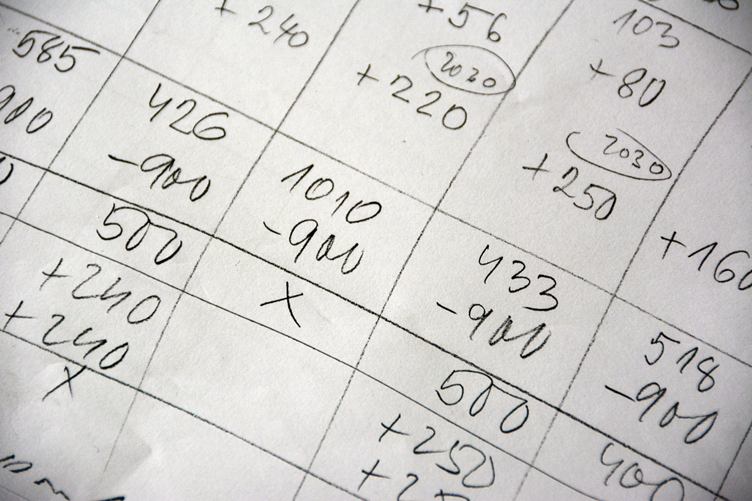 +240
+56
2030
+220
103
+80
2030
+250
+160
585
900
426
-900
1010
-900
433
-900
518
-900
500
+240
+240
X
X
500
+250
400